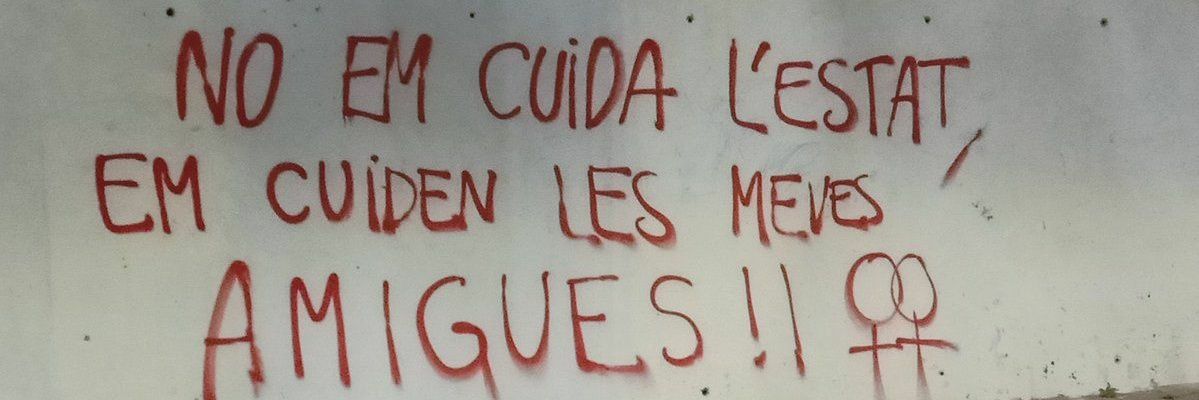 NO EM CUiDA L'ESTAT,
EM CUiDEN LES MEVES
AMIGUES!!